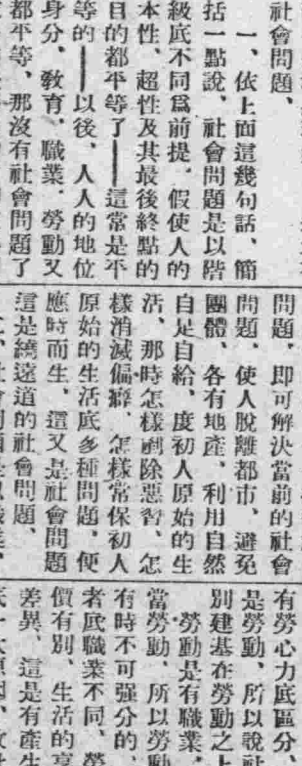 社會問題、
一、依上面這幾句話、簡
括一點說、社會問題是以階
級底不同爲前提、假使人的
本性、超性及其最後終點的
目的都平等了——這常是平
等的——以後、人人的地位
身分、敎育、職業、勞動又
都平等、那沒有社會問題了
問題、即可解決當前的社會
問題、使人脫離都市、避免
團體、各有地產、利用自然
自足自給、度初人原始的生
活、那時怎樣剷除惡習、怎
樣消滅偏癖、怎樣常保初人
原始的生活底多種問題、便
應時而生、這又是社會問題
這是繞遠道的社會問題、
有勞心力底區分、
是勞動、所以說社
別建基在勞動之上
勞動是有職業、
當勞動、所以勞動
有時不可强分的、
者底職業不同、勞
價有別、生活的享
差異、這是有產生